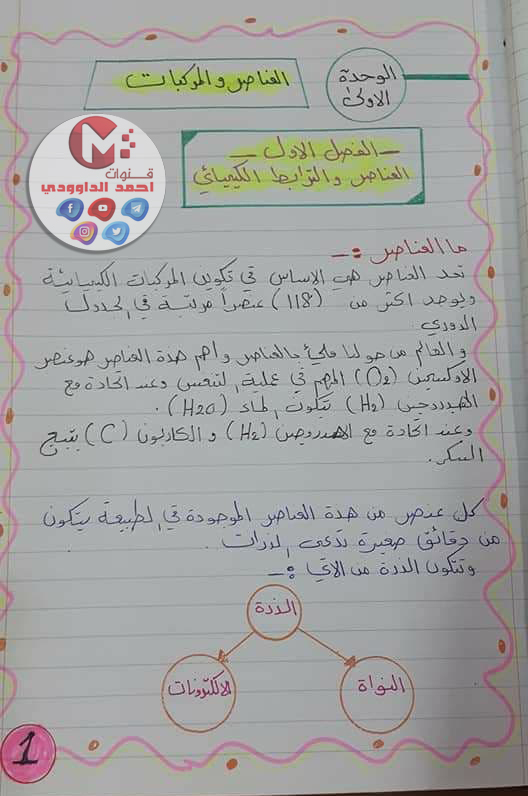 الوحدة
الاولى
العناصر والمركبات
- الفصل الاول -
العناصر والترابط الكيميائي
قنوات
احمد الداوودي
ما العناصر :-
تعد العناصر هي الاساس في تكوين المركبات الكيميائية
ويوجد اكثر من (118) عنصراً مرتبة في الجدول
الدوري
و العالم من حولنا مليئ بالعناصر و اهم هذة العناصر هو عنصر
الاوكسجين (O2) المهم في عملية التنفس وعند اتحادة مع
الهيدروجين (H2) يتكون الماء (H2O).
وعند اتحادة مع الهيدروجين (H2) و الكاربون (C) ينتج
السكر.
كل عنصر من هذة العناصر الموجودة في الطبيعة يتكون
من دقائق صغيرة تدعى الذرات.
وتتكون الذرة من الاتي :-
الذرة
النواة
الالكترونات
1